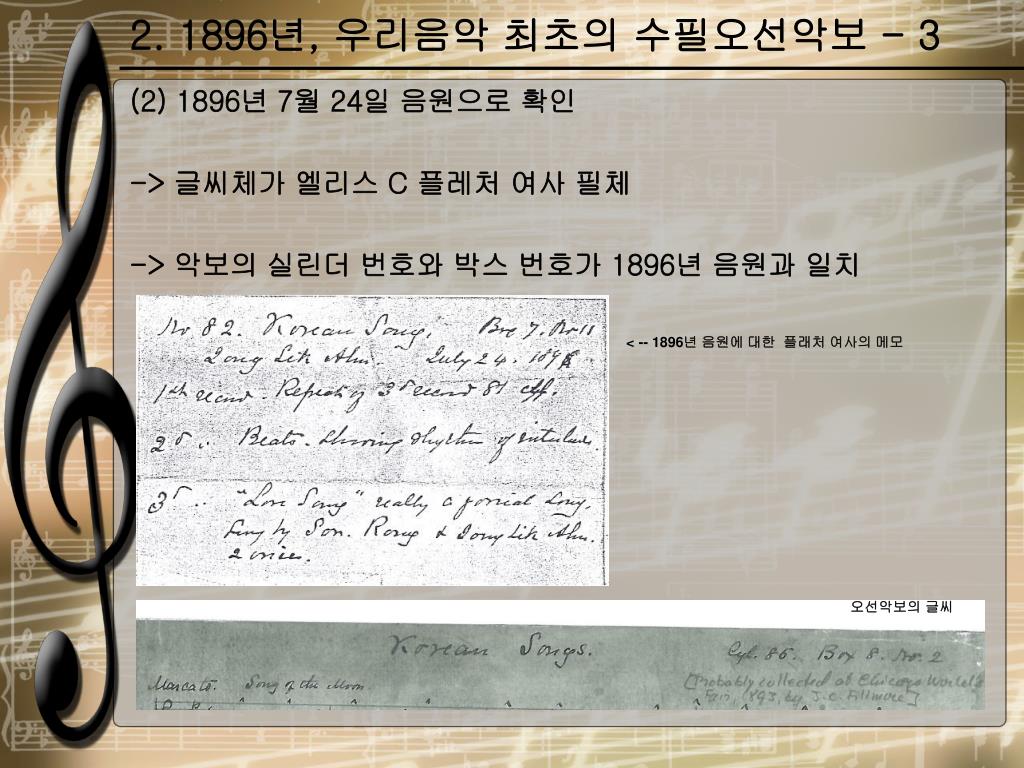 2. 1896년, 우리음악 최초의 수필오선악보 - 3
(2) 1896년 7월 24일 음원으로 확인
-> 글씨체가 엘리스 C 플레처 여사 필체
-> 악보의 실린더 번호와 박스 번호가 1896년 음원과 일치
No 82. Korean Song. Box 7. No 11
Jong Sik Ahn. July 24. 1896
1st record. Repeat of 3d record 81 cyl.
2d .. Beats. Showing rhythm of interludes.
3d .. "Love Song" really a jovial song.
Sung by Son. Rong & Jong Sik Ahn.
2 voices.
< -- 1896년 음원에 대한 플래처 여사의 메모
오선악보의 글씨
Korean Songs. Cyl. 85. Box 8. No. 2
Marcato. Song of the Moon.
[Probably collected at Chicago World's
Fair, 1893, by J.C. Fillmore]